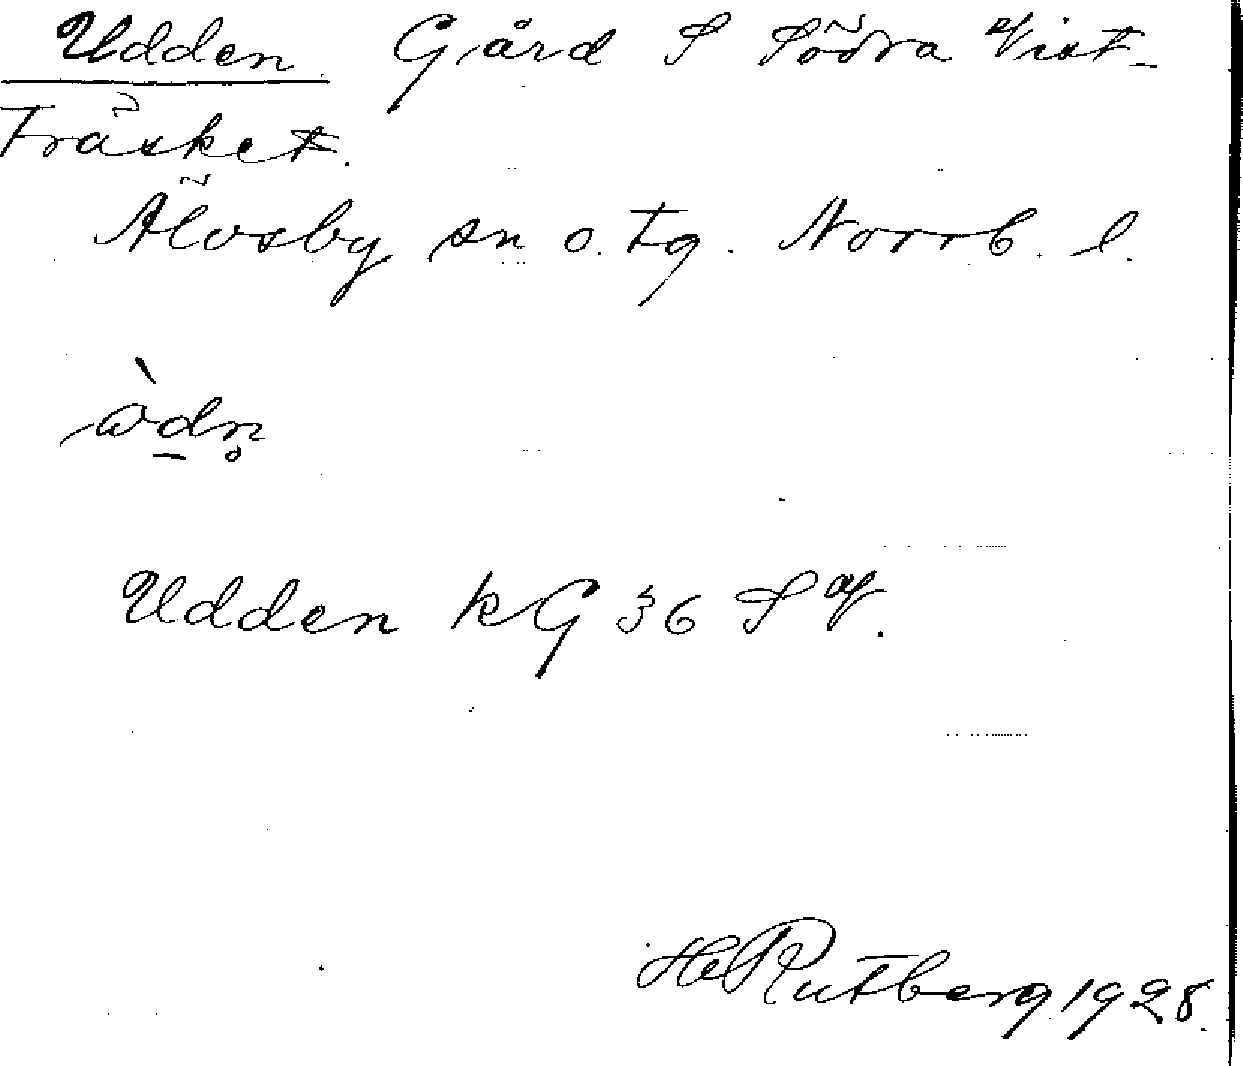 Udden Gård S Södra Vist-
Träsket.
Älvsby sn o. tg. Norrb. l.
Udden kG 36 S V.
H Rutberg 1928.